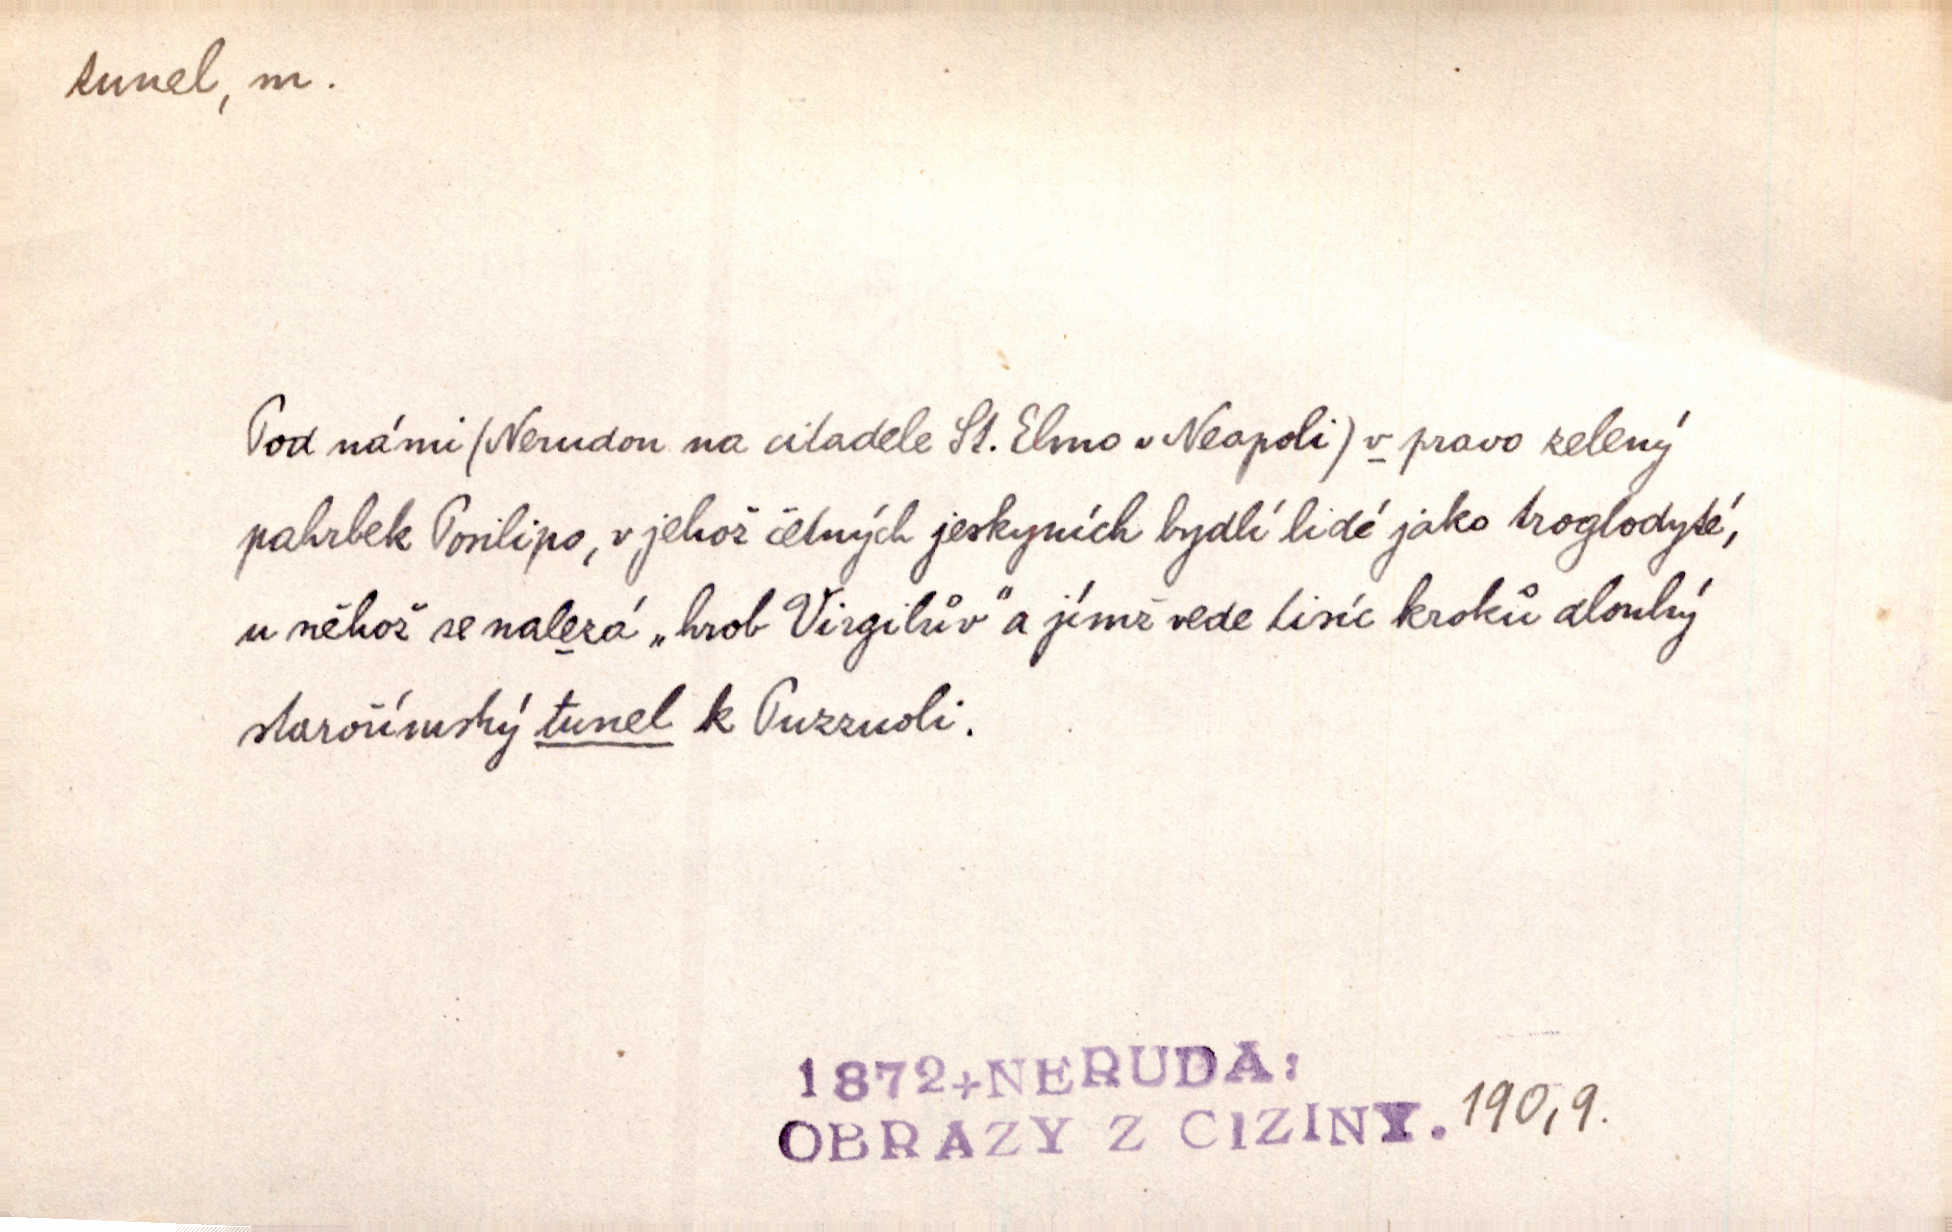 tunel, m.
Pod námi (Nerudou na citadele St. Elmo v Neapoli) v pravo zelený
pahrbek Posilipo, v jehož četných jeskyních bydlí lidé jako troglodyté,
u něhož se nalezá „hrob Virgilův" a jímž vede tisíc kroků dlouhý
starořímský tunel k Puzzuoli.
1872+NERUDA:
OBRAZY Z CIZINY. 190,9.